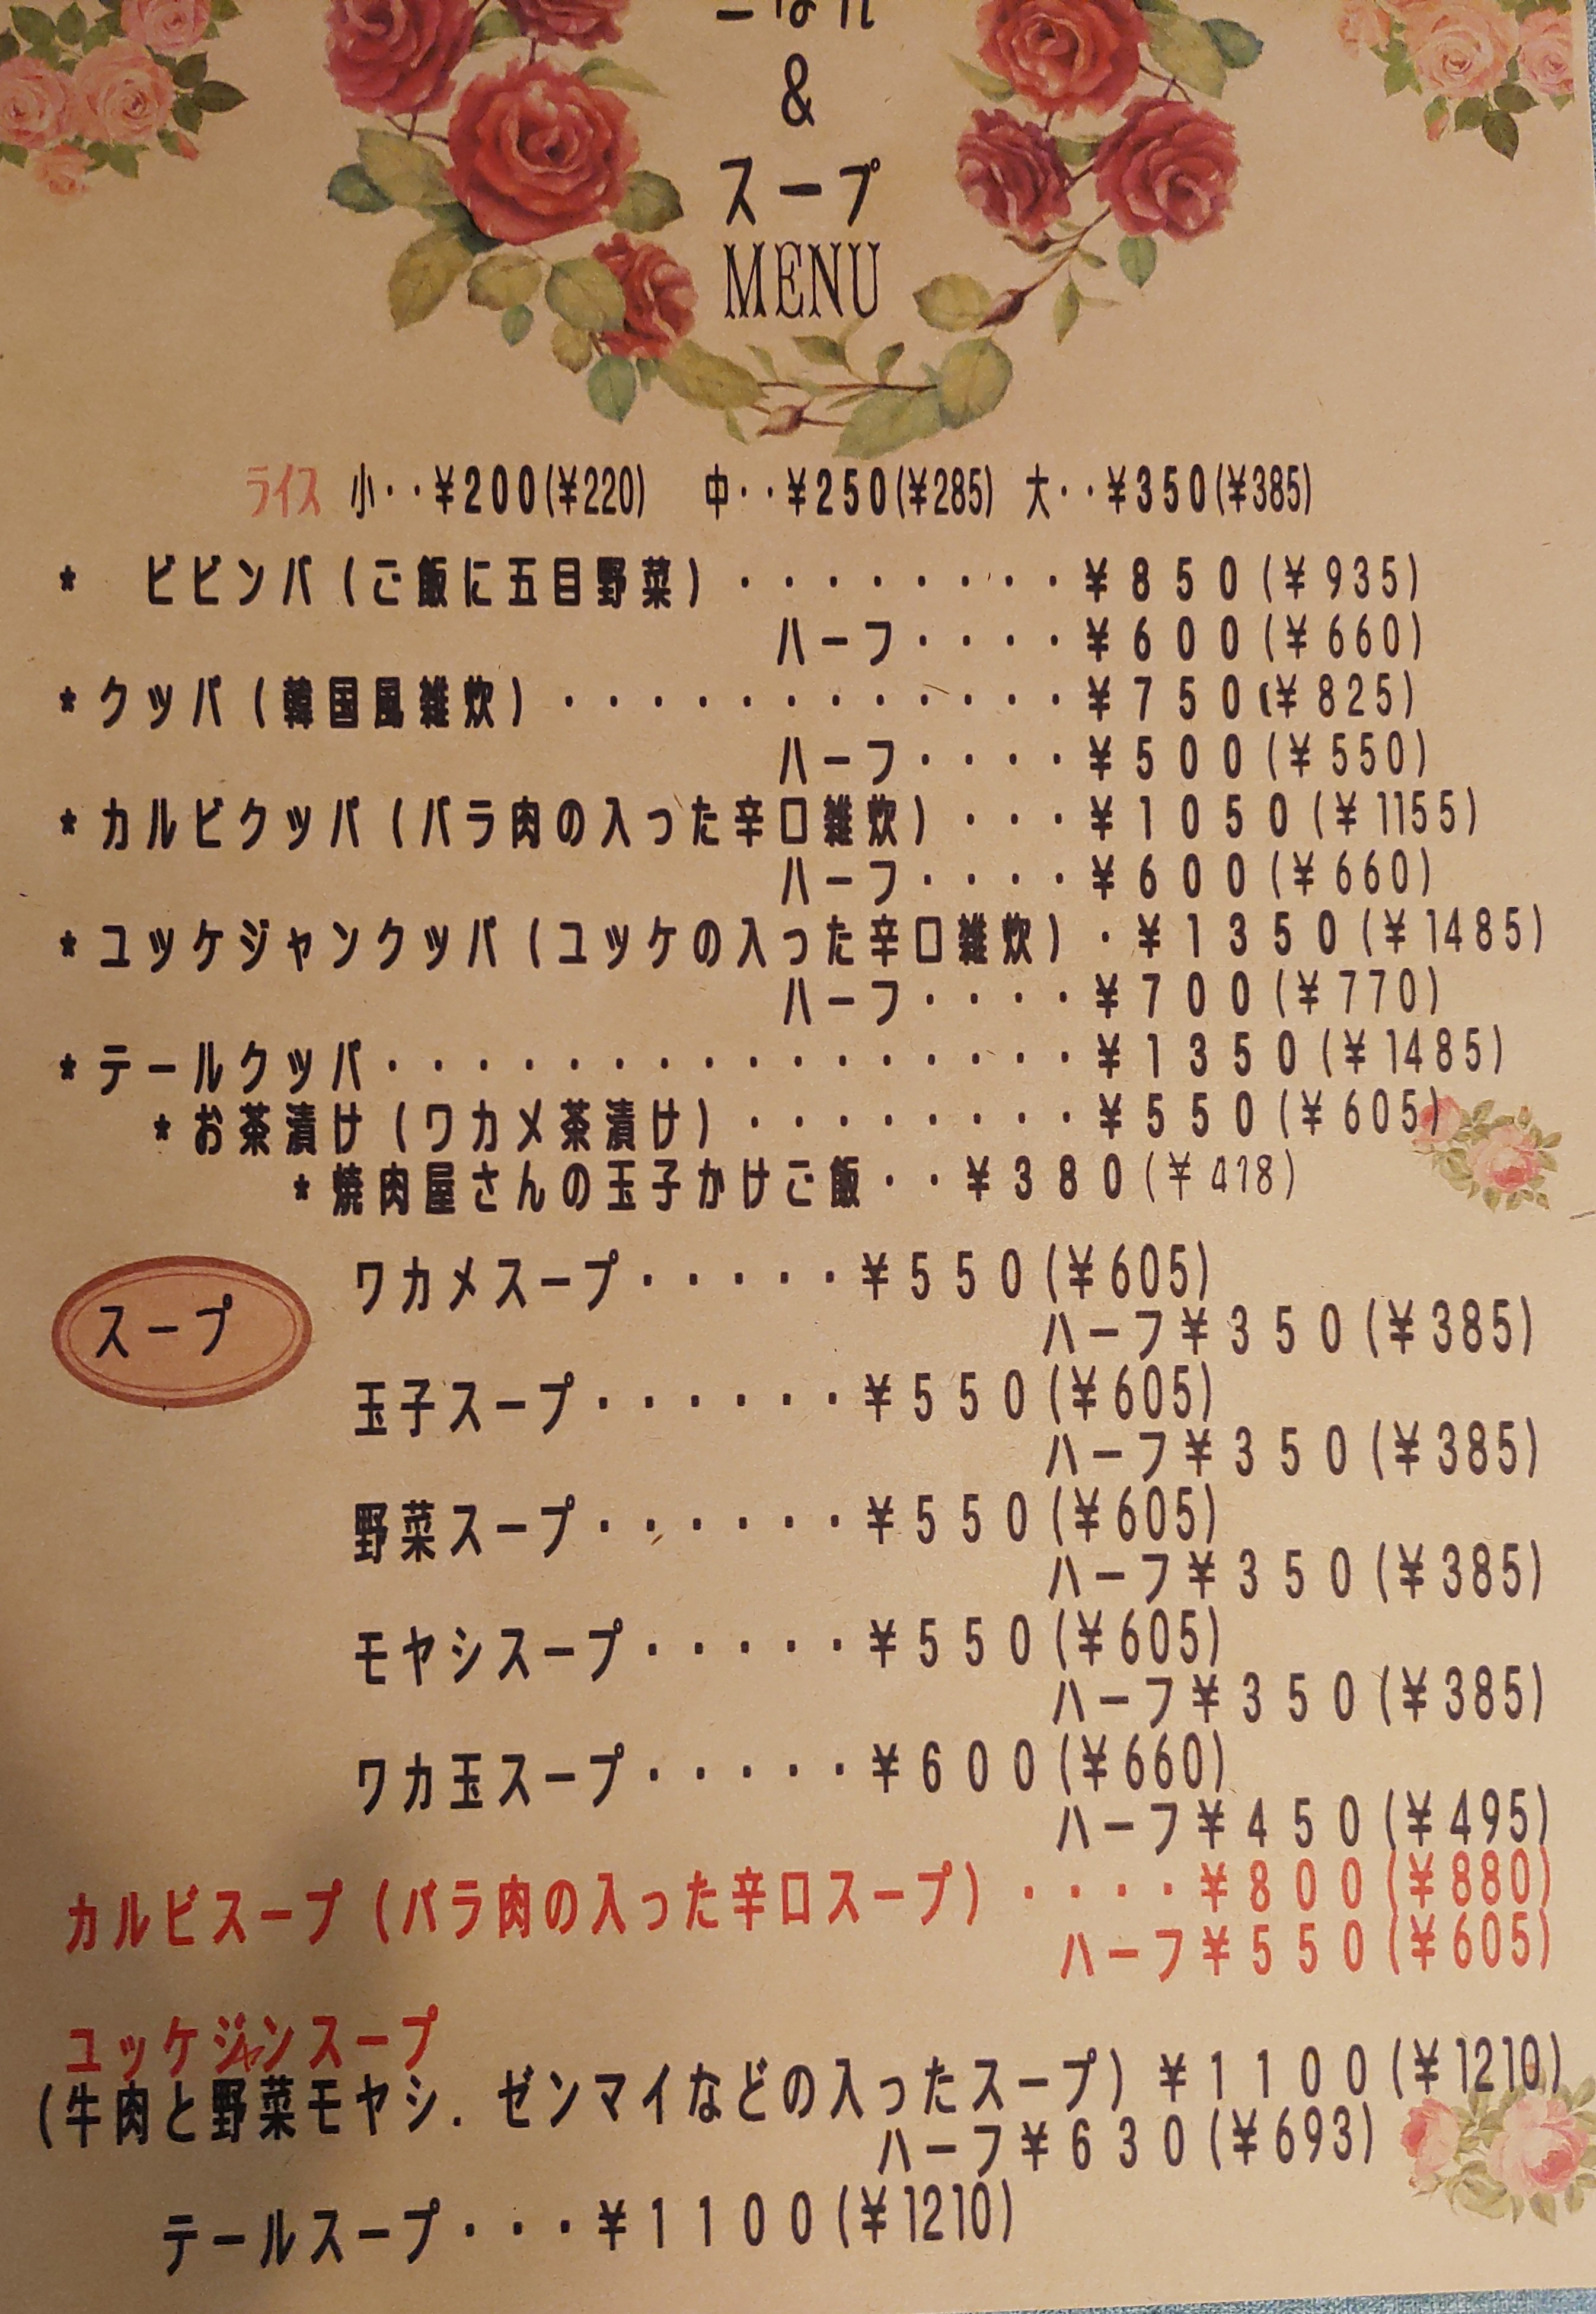 &
スープ
MENU
ライス 小‥¥200(¥220) 中‥¥250(¥285) 大‥¥350(¥385)
* ビビンバ(ご飯に五目野菜)········¥850(¥935)
ハーフ····¥600(¥660)
*クッパ(韓国風雑炊)············¥750(¥825)
ハーフ····¥500(¥550)
*カルビクッパ(バラ肉の入った辛口雑炊)···¥1050(¥1155)
ハーフ····¥600(¥660)
*ユッケジャンクッパ(ユッケの入った辛口雑炊)·¥1350(¥1485)
ハーフ····¥700(¥770)
*テールクッパ················¥1350(¥1485)
*お茶漬け(ワカメ茶漬け)········¥550(¥605)
*焼肉屋さんの玉子かけご飯··¥380(¥418)
スープ
ワカメスープ·····¥550(¥605)
ハーフ¥350(¥385)
玉子スープ······¥550(¥605)
ハーフ¥350(¥385)
野菜スープ······¥550(¥605)
ハーフ¥350(¥385)
モヤシスープ·····¥550(¥605)
ハーフ¥350(¥385)
ワカ玉スープ·····¥600(¥660)
ハーフ¥450(¥495)
カルビスープ(バラ肉の入った辛口スープ)····¥800(¥880)
ハーフ¥550(¥605)
ユッケジャンスープ
(牛肉と野菜モヤシ.ゼンマイなどの入ったスープ)¥1100(¥1210)
ハーフ¥630(¥693)
テールスープ···¥1100(¥1210)